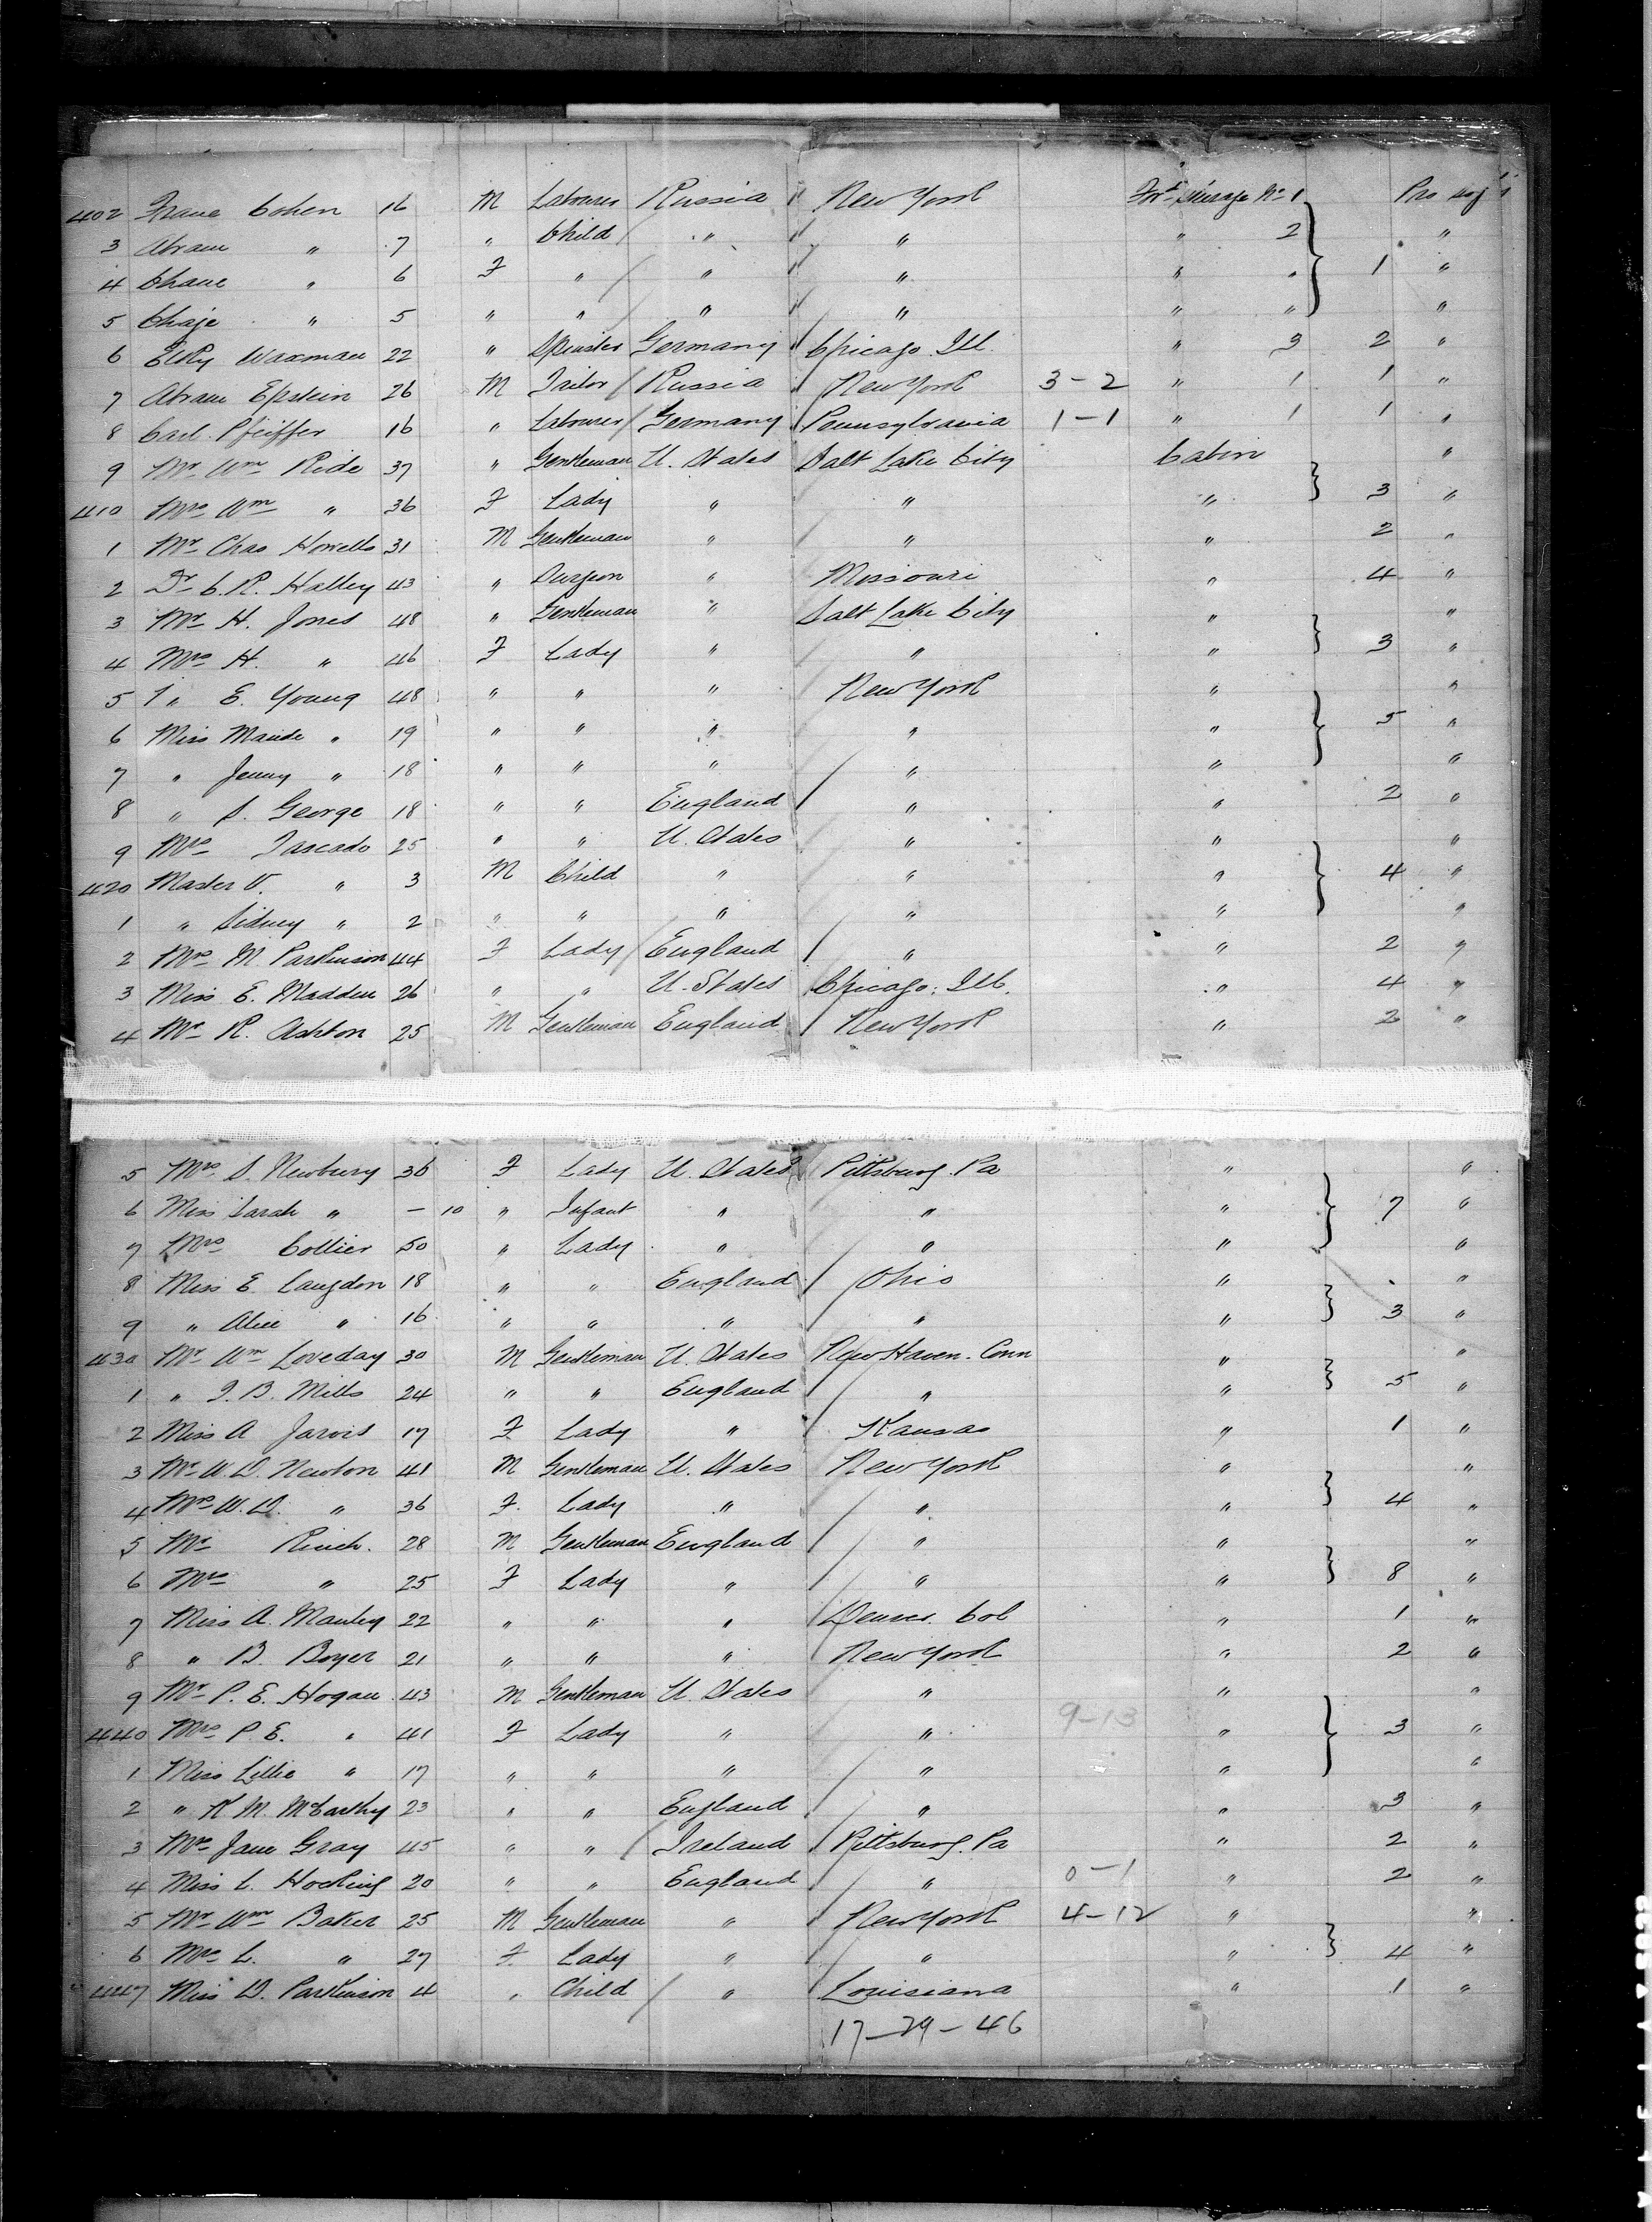 402 Frane Cohen 16 M Labourer Russia New York Fwd Steerage No 1 Pro Soj
3 Abram " 7 " Child " " " 2 "
4 Chane " 6 F " " " " " 1 "
5 Chaje " 5 " " " " " " "
6 Elky Waxman 22 " Spinster Germany Chicago Ill. " 3 2 "
7 Abram Epstein 26 M Tailor Russia New York 3-2 " 1 1 "
8 Carl Pfeiffer 16 " Labourer Germany Pennsylvania 1-1 " 1 1 "
9 Mr Wm Ride 37 " Gentleman U. States Salt Lake City Cabin "
410 Mrs Wm " 36 F Lady " " " 3 "
1 Mr Chas Howells 31 M Gentleman " " " 2 "
2 Dr C. R. Halley 43 " Surgeon " Missouri " 4 "
3 Mr H. Jones 48 " Gentleman " Salt Lake City " "
4 Mrs H. " 46 F Lady " " " 3 "
5 " E. Young 48 " " " New York " "
6 Miss Maude " 19 " " " " " 5 "
7 " Jenny " 18 " " " " " "
8 " S. George 18 " " England " " 2 "
9 Mrs Tascado 25 " " U. States " " "
420 Master V. " 3 M Child " " " 4 "
1 " Sidney " 2 " " " " " "
2 Mrs M. Parkinson 44 F Lady England " " 2 "
3 Miss E. Madden 26 " " U. States Chicago. Ill. " 4 "
4 Mr R. Ashton 25 M Gentleman England New York " 2 "
5 Mrs S. Newbury 36 F Lady U. States Pittsburg. Pa " "
6 Miss Sarah " – 10 " Infant " " " 7 "
7 Mrs Collier 50 " Lady " " " "
8 Miss E. Langdon 18 " " England Ohio " "
9 " Alice " 16 " " " " " 3 "
430 Mr Wm Loveday 30 M Gentleman U. States New Haven. Conn " "
1 " J. B. Mills 24 " " England " " 5 "
2 Miss A Jarvis 17 F Lady " Kansas " 1 "
3 Mr W. D. Newton 41 M Gentleman U. States New York " "
4 Mrs W. D. " 36 F. Lady " " " 4 "
5 Mr Rinch. 28 M Gentleman England " " "
6 Mrs " 25 F Lady " " " 8 "
7 Miss A. Manley 22 " " " Denver. Col " 1 "
8 " B. Boyer 21 " " " New York " 2 "
9 Mr P. E. Hogan 43 M Gentleman U. States " " "
440 Mrs P. E. " 41 F Lady " " 9-13 " 3 "
1 Miss Lillie " 17 " " " " " "
2 " K M. McCarthy 23 " " England " " 3 "
3 Mrs Jane Gray 45 " " Ireland Pittsburg. Pa " 2 "
4 Miss L. Hocking 20 " " England " 0-1 " 2 "
5 Mr Wm Baker 25 M Gentleman " New York 4-12 " "
6 Mrs L. " 27 F Lady " " " 4 "
447 Miss D. Parkinson 4 " Child " Louisiana " 1 "
17-29-46